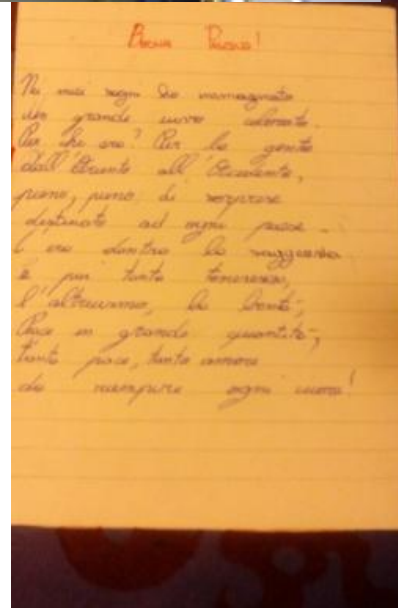 Buona Pasqua!
Nei miei sogni ho immaginato
un grande uovo colorato.
Per chi era? Per la gente
dall'Oriente all'Occidente,
pieno, pieno di sorprese
destinate ad ogni paese.
C'era dentro la saggezza
e poi tanta tenerezza,
l'altruismo, la bontà,
Pace in grande quantità,
tanta pace, tanto amore
da riempire ogni cuore!